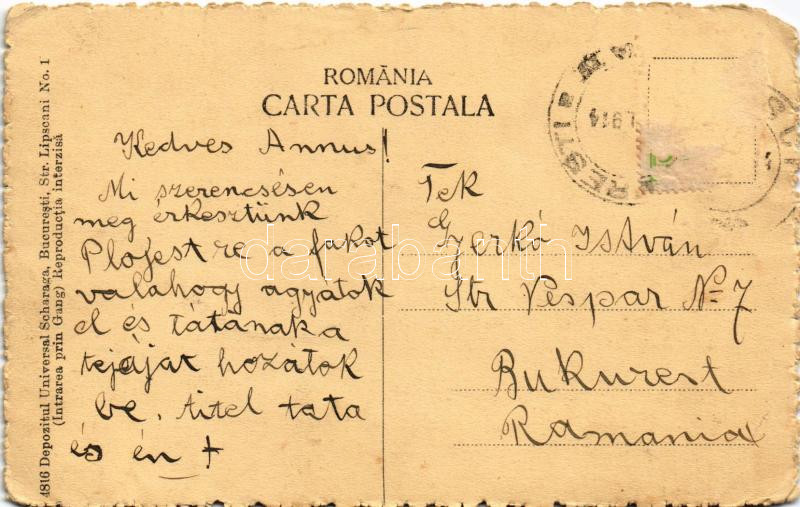 ROMÂNIA
CARTA POSTALA
Kedves Annus!
Mi szerencsésen
meg érkesztünk
Plojestre a fakot
valahogy agyátok
el és tátánaka
tejáját hozátok
be. titel tata
és én +
Tek
Gyerkó István
Str Vespar No 7
Bukurest
Ramania
4816 Depozitul Universal Scharaga, Bucureşti, Str. Lipscani No. 1
(Intrarea prin Gang) Reproducţia interzisă
1914
darabanth